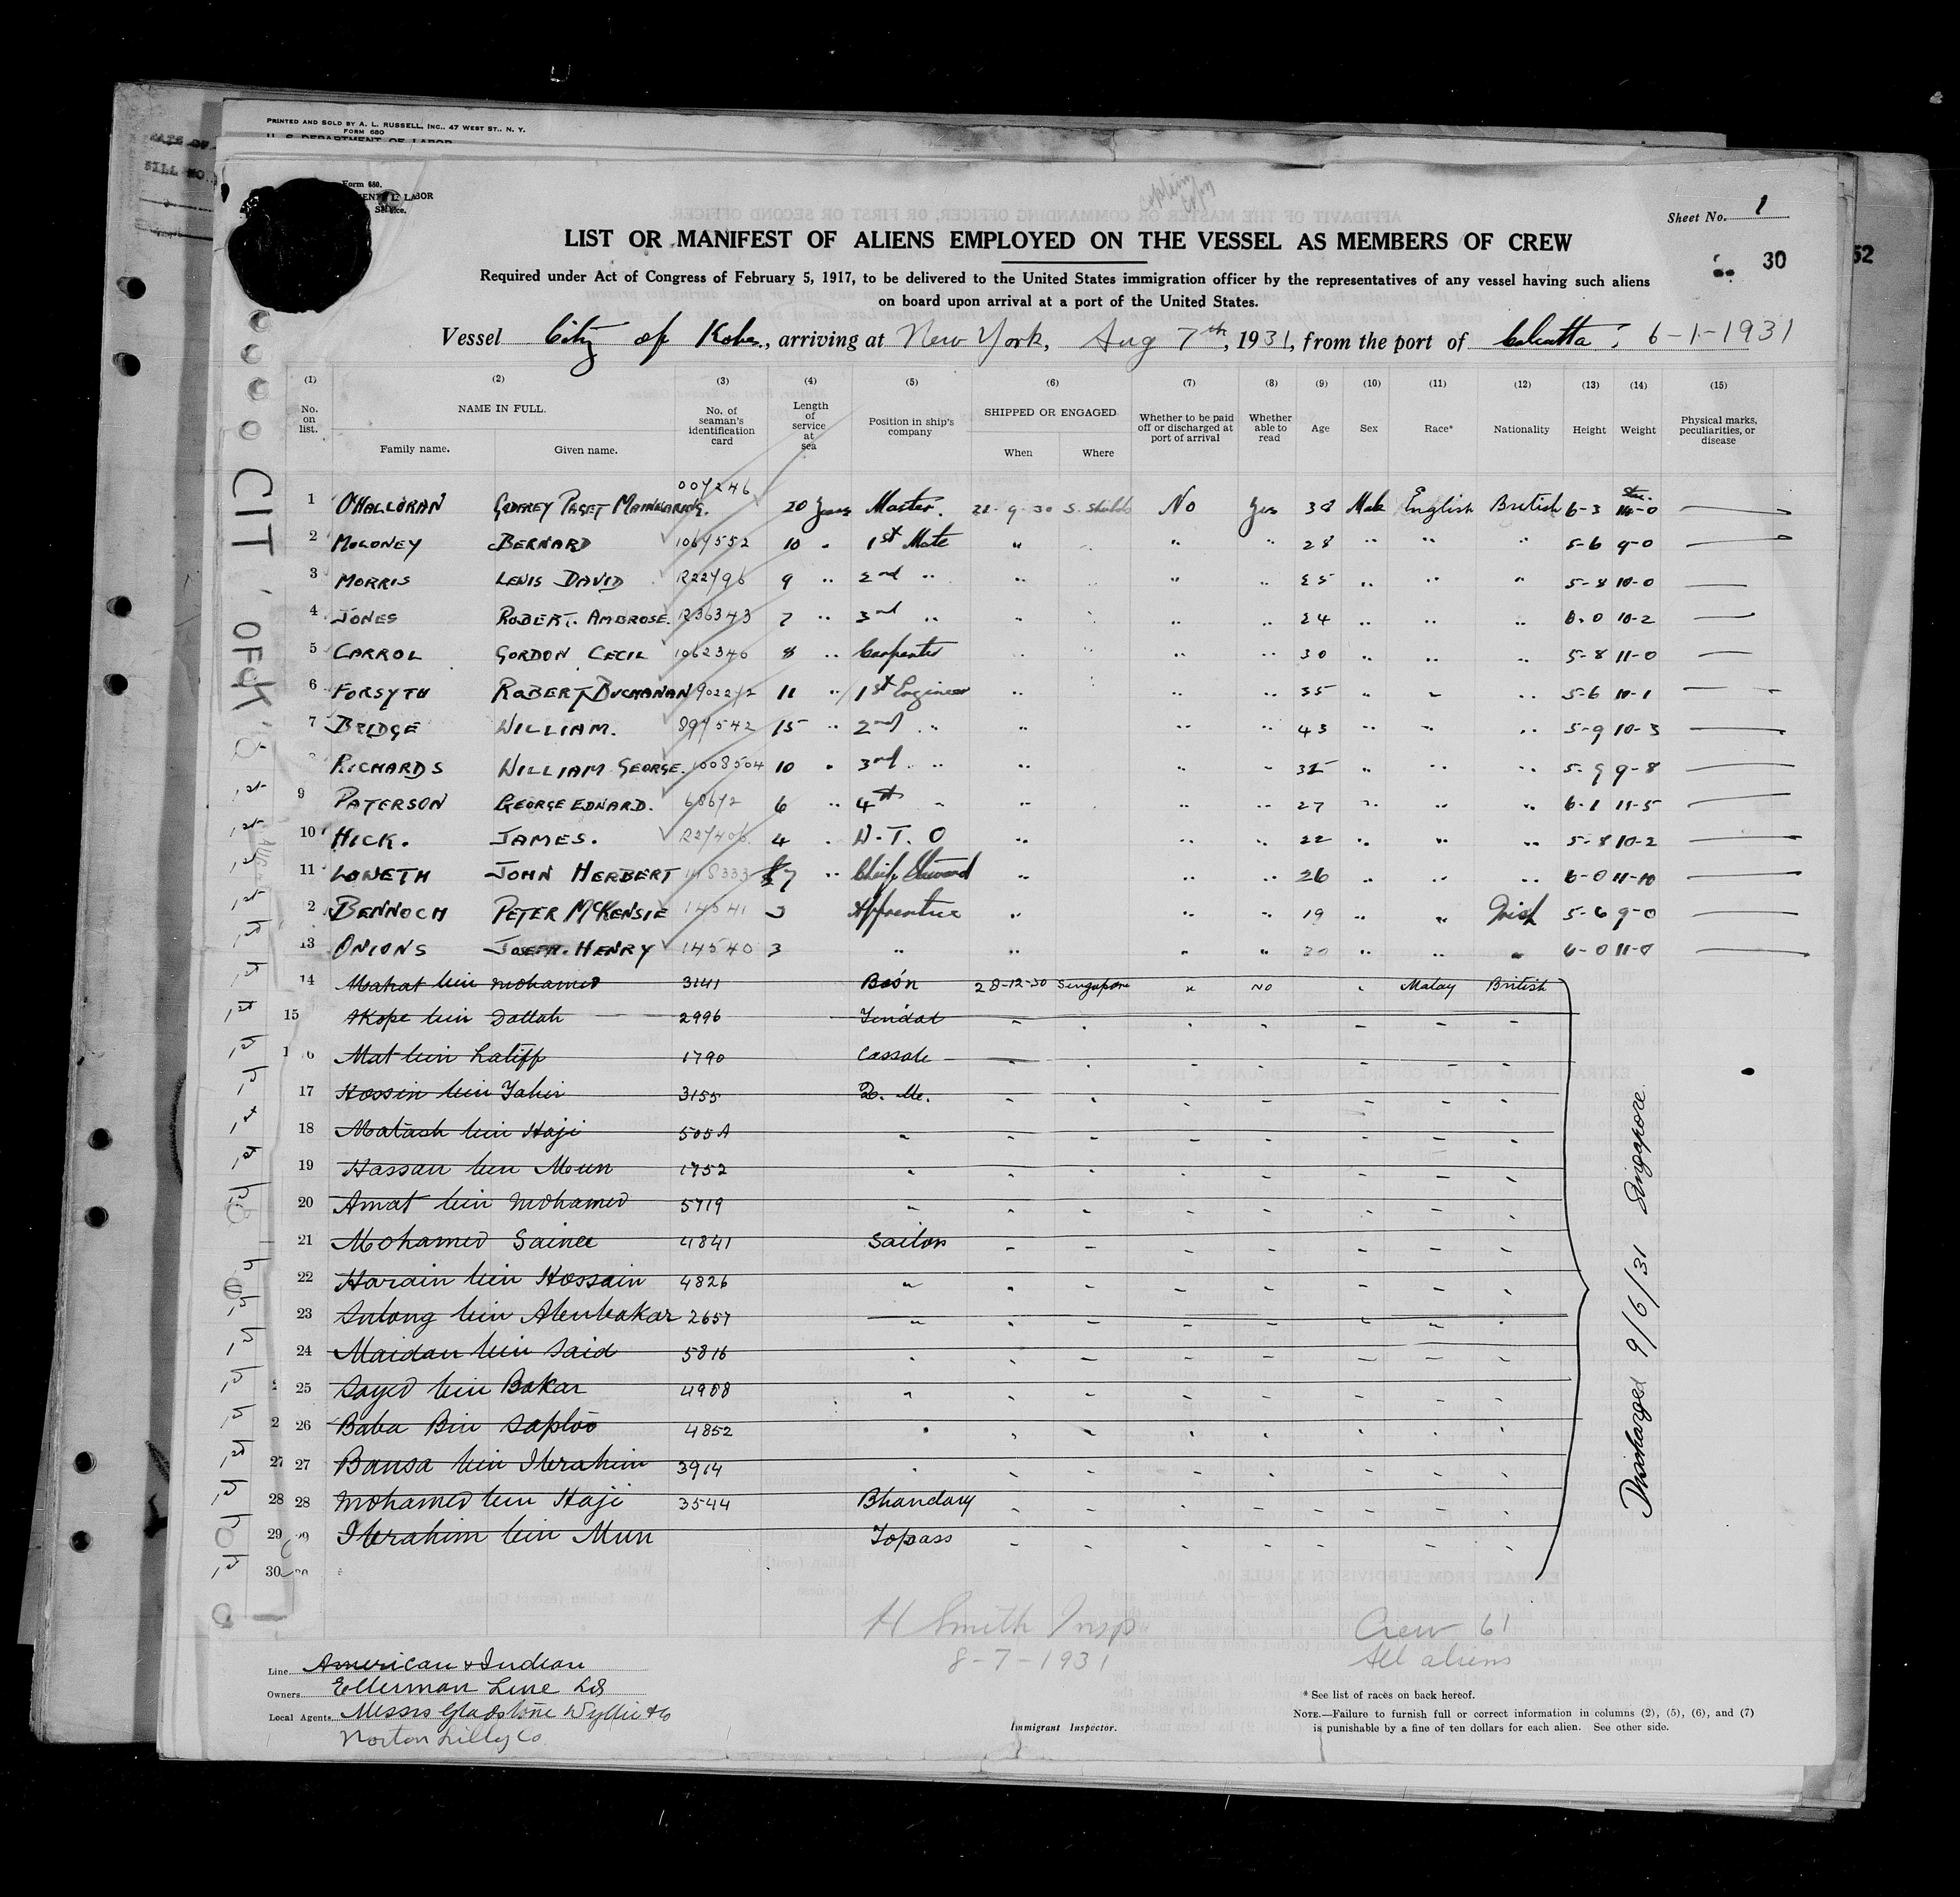 PRINTED AND SOLD BY A. L. RUSSELL, INC., 47 WEST ST., N. Y.
FORM 680
U. S. DEPARTMENT OF LABOR
Form 680.
LABOR
Service.
Sheet No. 1
LIST OR MANIFEST OF ALIENS EMPLOYED ON THE VESSEL AS MEMBERS OF CREW
30
52
Required under Act of Congress of February 5, 1917, to be delivered to the United States immigration officer by the representatives of any vessel having such aliens
on board upon arrival at a port of the United States.
Vessel City of Kobe, arriving at New York, Aug 7th, 1931, from the port of Calcutta; 6-1-1931
(1) (2) (3) (4) (5) (6) (7) (8) (9) (10) (11) (12) (13) (14) (15)
No. on list. NAME IN FULL. Family name. Given name. No. of seaman's identification card Length of service at sea Position in ship's company SHIPPED OR ENGAGED When Where Whether to be paid off or discharged at port of arrival Whether able to read Age Sex Race* Nationality Height Weight Physical marks, peculiarities, or disease
1 O'HALLORAN GODFREY PAGET MAINWARING. 007246 20 Years Master. 22-9-30 S. Shields No Yes 38 Male English British 6-3 14-0
2 MOLONEY BERNARD 1067552 10 " 1st Mate " " " " 28 " " " 5-6 9-0
3 MORRIS LEWIS DAVID R22796 9 " 2nd " " " " " 25 " " " 5-8 10-0
4 JONES ROBERT. AMBROSE. R36343 7 " 3rd " " " " " 24 " " " 6-0 10-2
5 CARROL GORDON CECIL 1062346 8 " Carpenter " " " " 30 " " " 5-8 11-0
6 FORSYTH ROBERT BUCHANAN 902272 11 " 1st Engineer " " " 35 " " " 5-6 10-1
7 BRIDGE WILLIAM. 897542 15 " 2nd " " " " 43 " " " 5-9 10-3
RICHARDS WILLIAM GEORGE. 1008504 10 " 3rd " " " " 35 " " " 5-9 9-8
9 PATERSON GEORGE EDWARD. 68672 6 " 4th " " " " 27 " " " 6-1 11-5
10 HICK. JAMES. R27406 4 " W.T.O " " " 22 " " " 5-8 10-2
11 LOWETH JOHN HERBERT 7 " Chief Steward " " " 26 " " " 6-0 11-10
2 BENNOCH PETER McKENSIE 14541 3 Apprentice " " " 19 " " Irish 5-6 9-0
13 ONIONS JOSEPH. HENRY 14540 3 " " " " 20 " " " 6-0 11-0
14 Mahat bin Mohamed 3141 Bos'n 28-12-30 Singapore " NO " Malay British
15 Akope bin Dallah 2996 Tindal
16 Mat bin Latiff 1790 Cassab
17 Hossin bin Tahir 3155 Q. M.
18 Matash bin Haji 505A "
19 Hassan bin Mun 1752 "
20 Amat bin Mohamed 5719 "
21 Mohamed Sainee 4841 Sailors
22 Harain bin Hossain 4826 "
23 Sulong bin Abubakar 2657 "
24 Maidan bin Said 5816 "
25 Sayed bin Bakar 4988 "
26 Baba Bin Saploo 4852 "
27 27 Bansa bin Ibrahim 3914 "
28 28 Mohamed bin Haji 3544 Bhandary
29 Ibrahim bin Mun Topass
30
Discharged 9/6/31 Singapore
H Smith Insp
8-7-1931
Crew 61
All aliens
Line American & Indian
Owners Ellerman Line Ld
Local Agents Messrs Gladstone Wyllie & Co
Norton Lilly Co
Immigrant Inspector.
* See list of races on back hereof.
NOTE.—Failure to furnish full or correct information in columns (2), (5), (6), and (7)
is punishable by a fine of ten dollars for each alien. See other side.